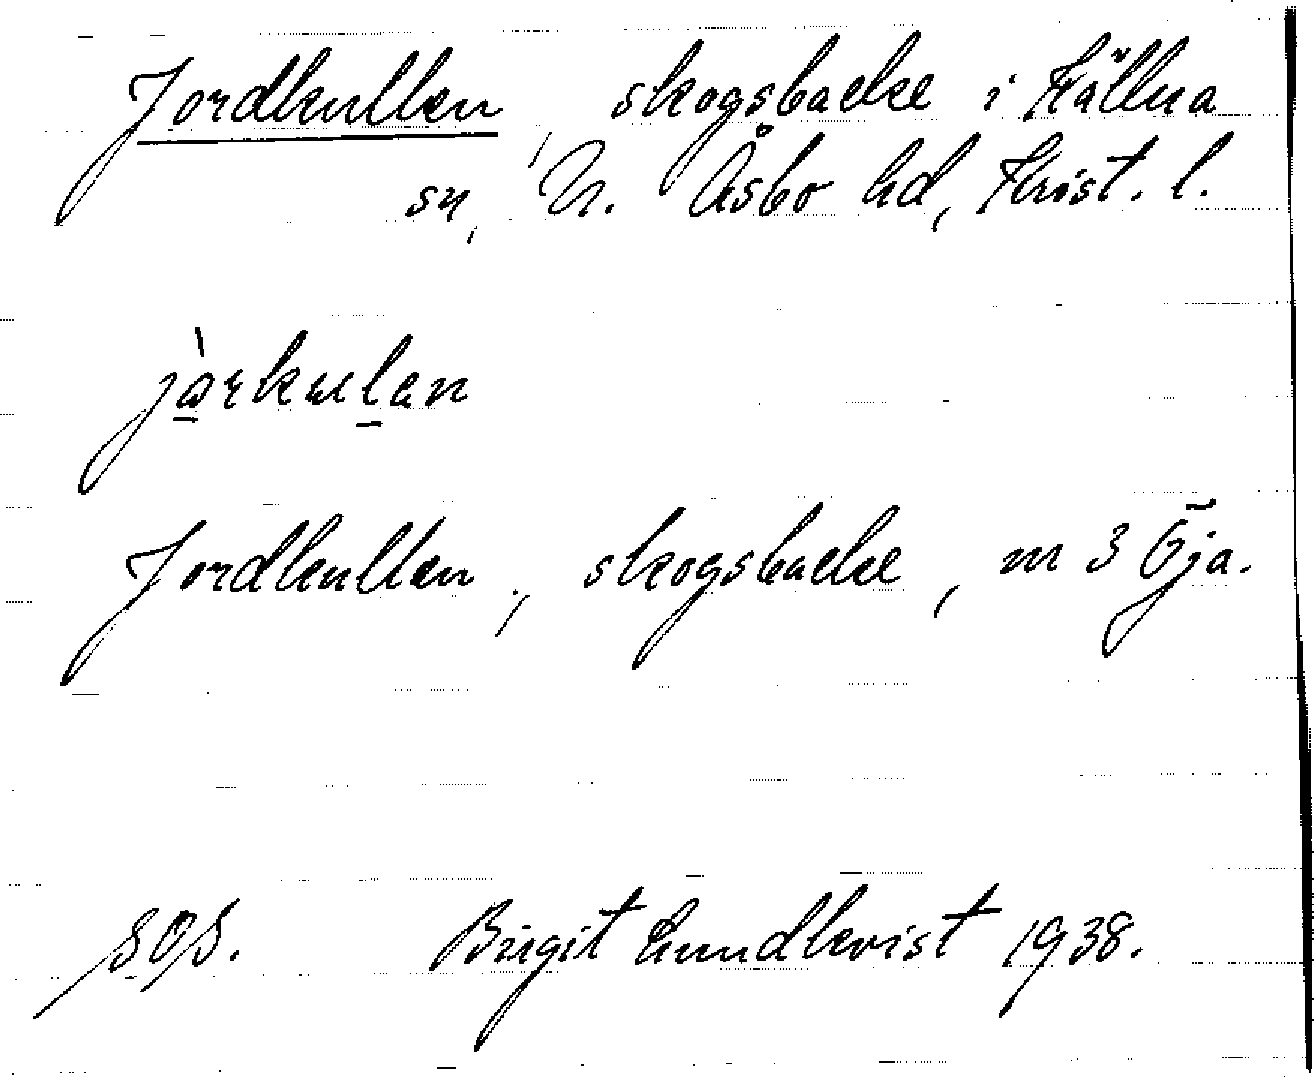 Jordkullen, skogsbacke i Källna
sn, N. Åsbo hd, Krist. l.
jàrkulen
Jordkullen, skogsbacke, nr 3 Gja.
Birgit Lundkvist 1938.